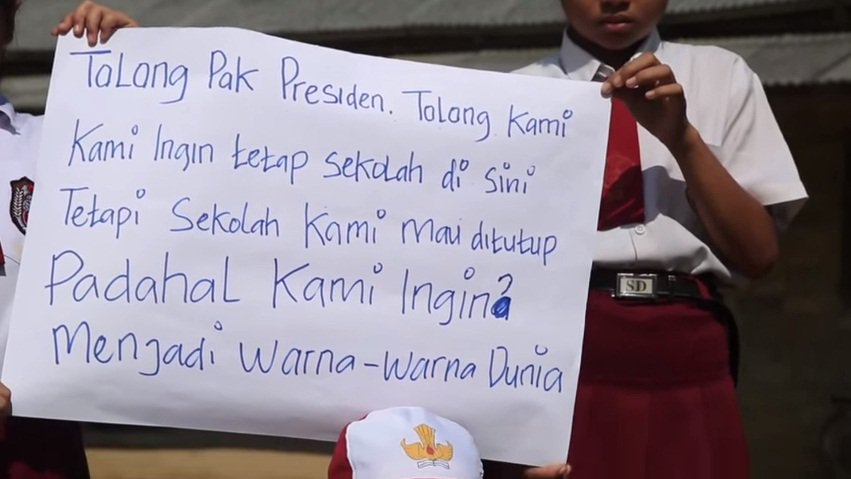 Tolong Pak Presiden. Tolong Kami
Kami Ingin tetap sekolah di sini
Tetapi Sekolah Kami mau ditutup
Padahal Kami Ingin
Menjadi Warna-Warna Dunia
SD